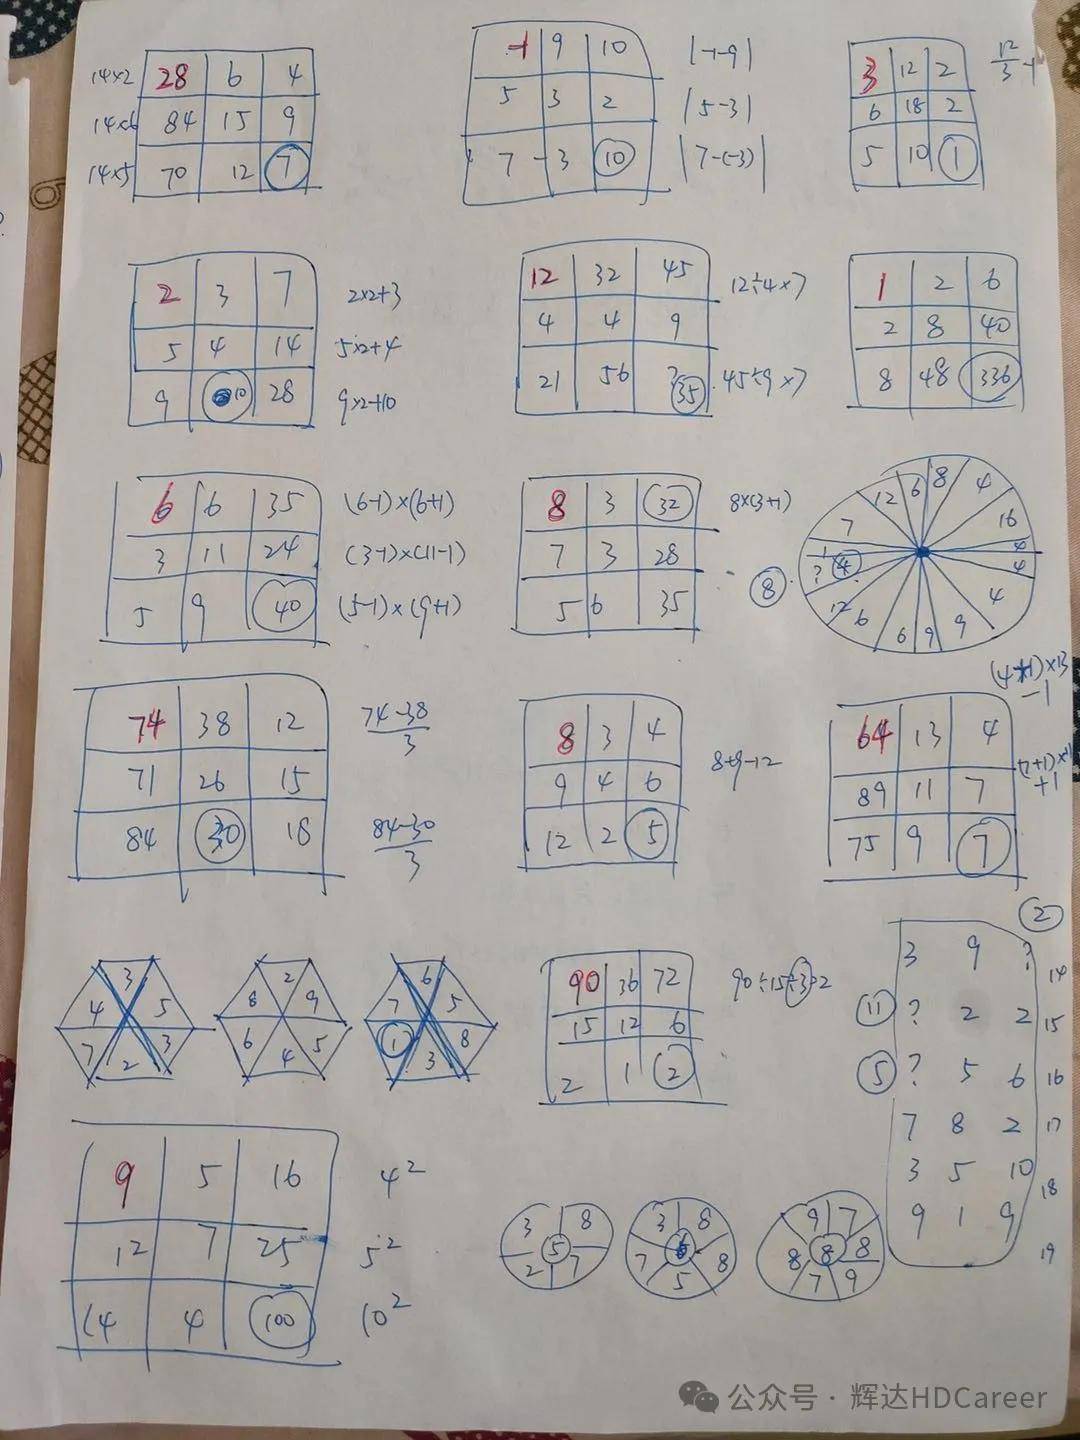 14×2 28 6 4
14×6 84 15 9
14×5 70 12 7
-1 9 10 |-1-9|
5 3 2 |5-3|
7 -3 10 |7-(-3)|
3 12 2 12/3 -1
6 18 2
5 10 1
2 3 7 2×2+3
5 4 14 5×2+4
9 10 28 9×2+10
12 32 45 12÷4×7
4 4 9
21 56 ? 35 45÷9×7
1 2 6
2 8 40
8 48 336
6 6 35 (6-1)×(6+1)
3 11 24 (3-1)×(11-1)
5 9 40 (5-1)×(9+1)
8 3 32 8×(3+1)
7 3 28
5 6 35
12 6 8 4
7 16
1 4
8 ? 4 4
12 6 6 9 9 4
74 38 12 74-38/3
71 26 15
84 30 18 84-30/3
8 3 4 8+9-12
9 4 6
12 2 5
(4+1)×13
-1
64 13 4
89 11 7 +1
75 9 7
3
4 5
7 3
2
2
8 9
6 5
4
6
7 5
1 8
3
90 36 72 90÷15÷3=2
15 12 6
2 1 2
2
3 9 ? 14
11 ? 2 2 15
5 ? 5 6 16
7 8 2 17
3 5 10 18
9 1 9 19
9 5 16 4²
12 7 25 5²
14 4 100 10²
3 8
5
2 7
3 8
6
7 5 8
9 7
8 8 8
7 9
公众号 · 辉达HDCareer